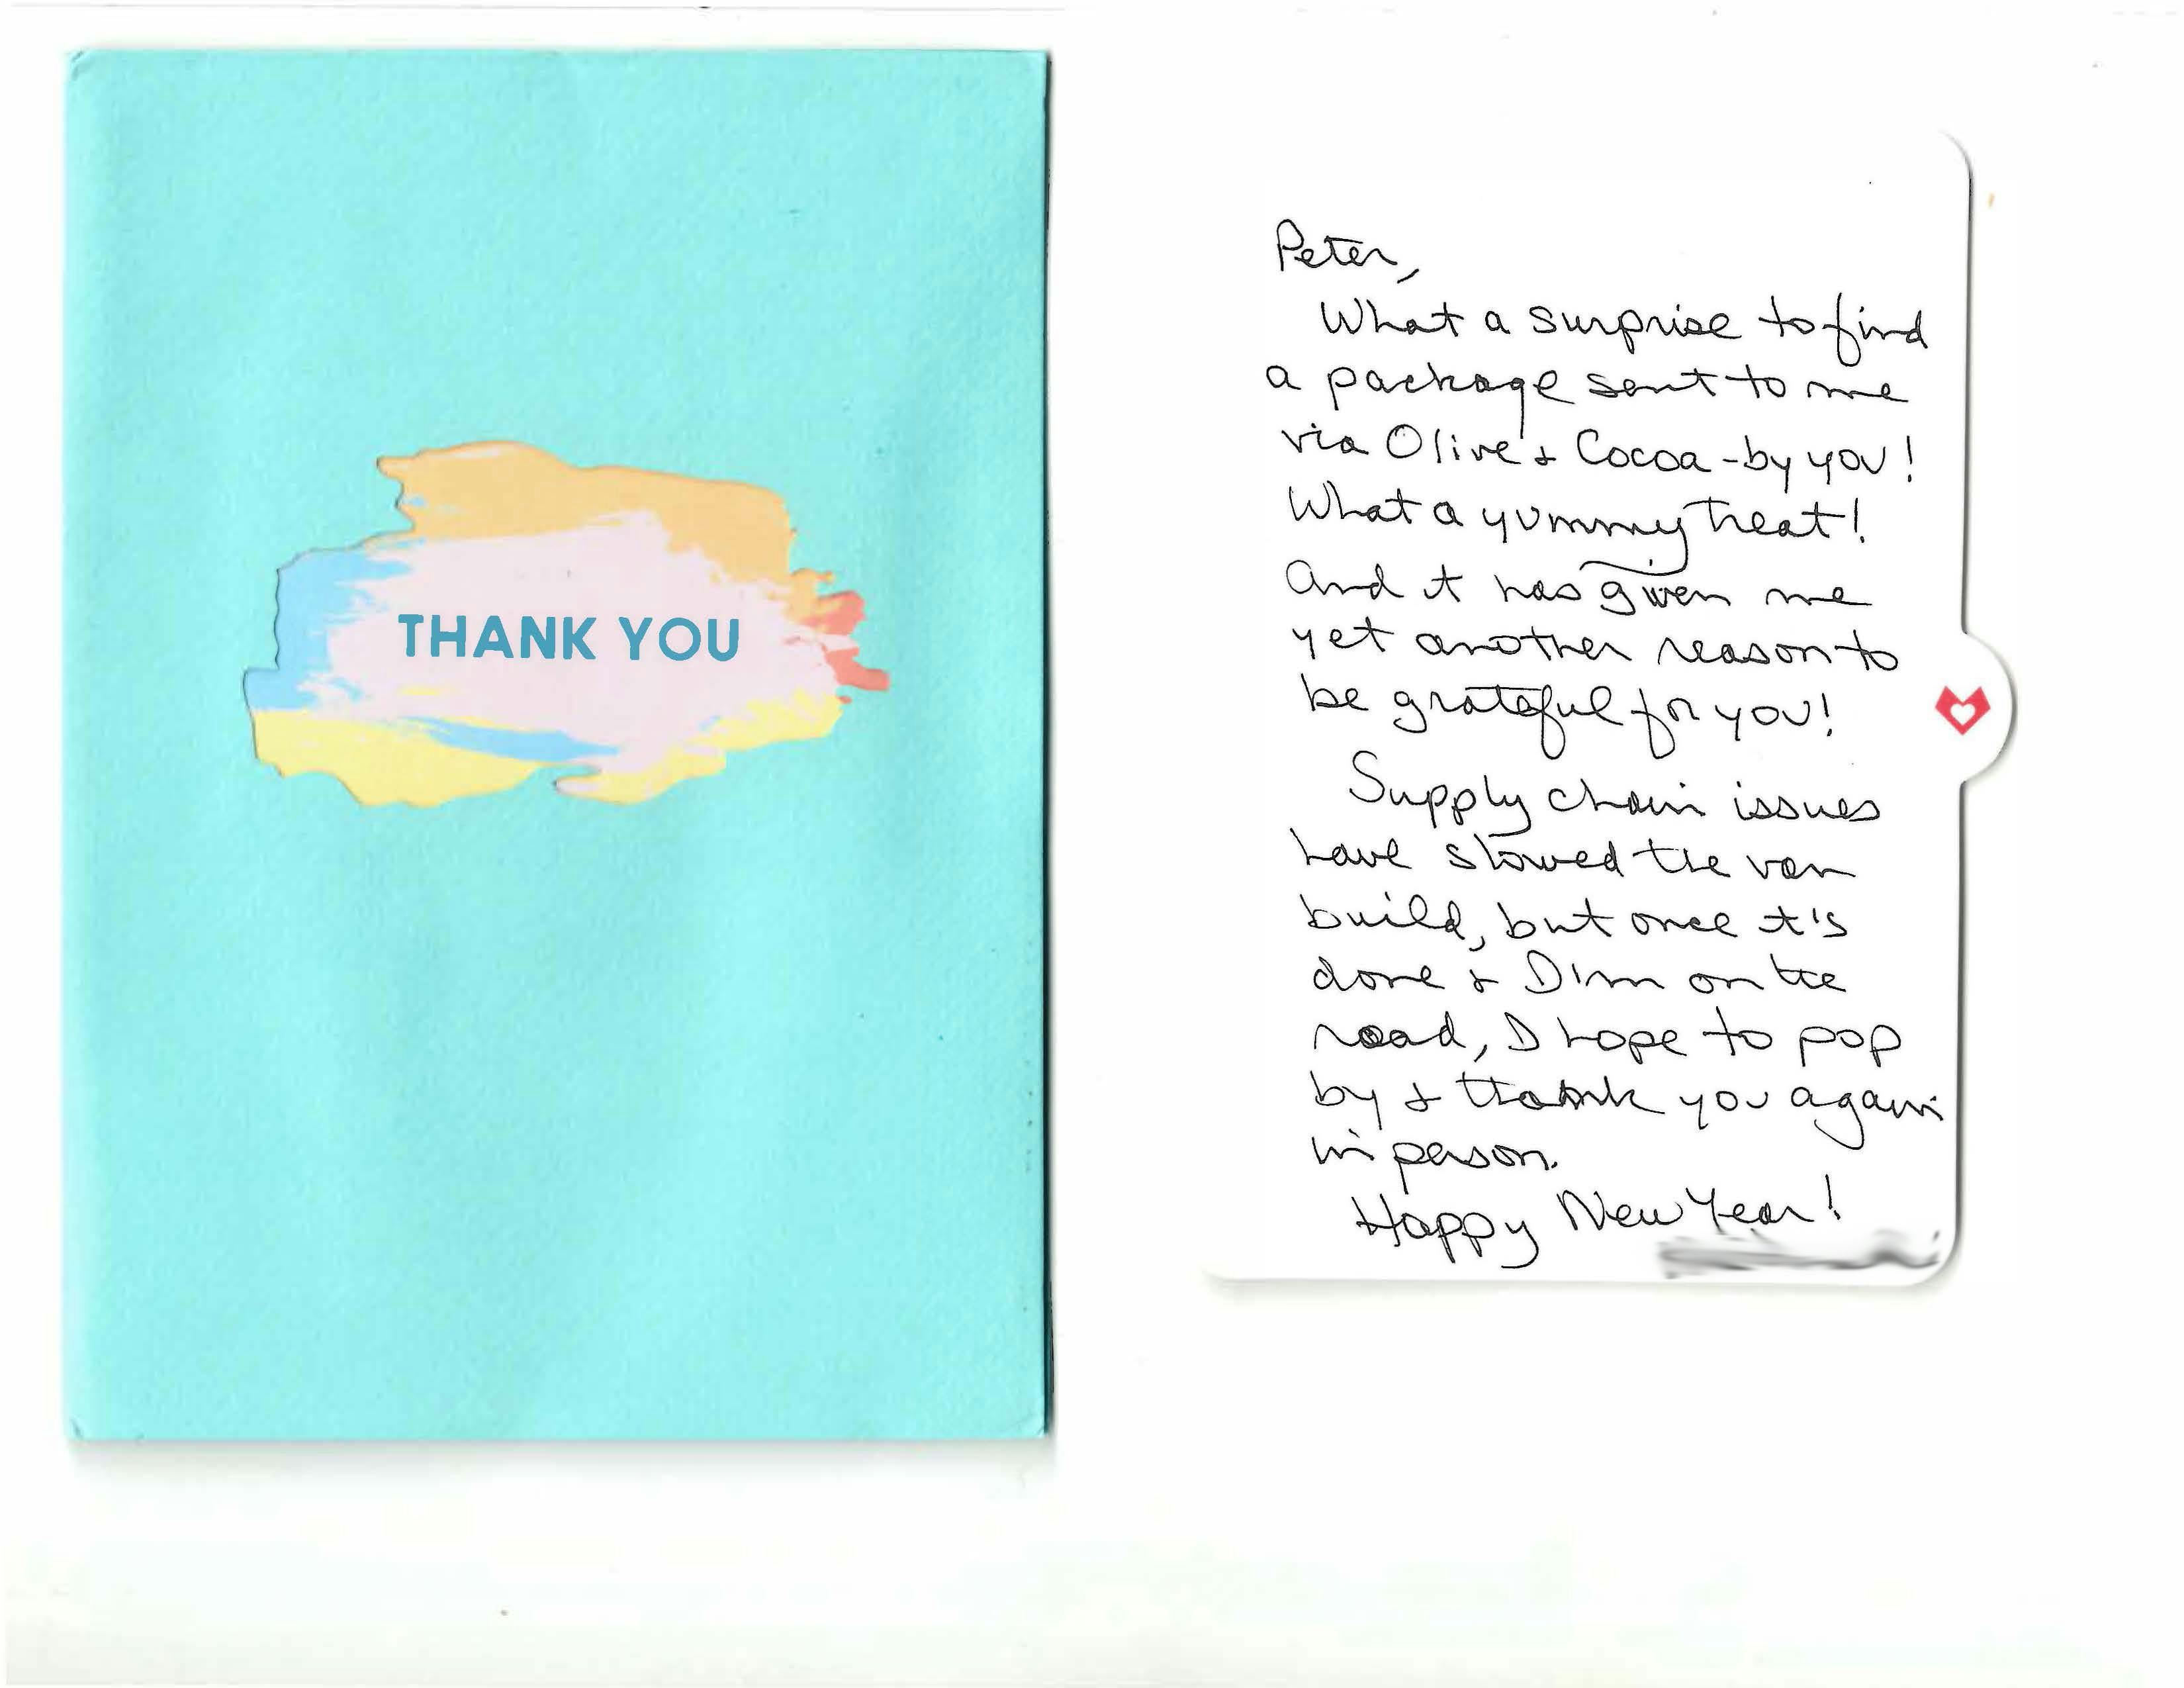 THANK YOU
Peter,
What a surprise to find
a package sent to me
via Olive & Cocoa - by you!
What a yummy treat!
And it has given me
yet another reason to
be grateful for you!
Supply chain issues
have slowed the van
build, but once it's
done & I'm on the
road, I hope to pop
by & thank you again
in person.
Happy New Year!